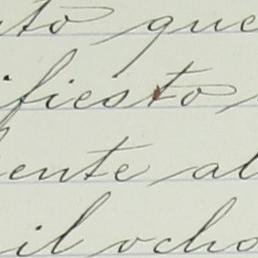 to que
ifiesto
ente al
il ocho